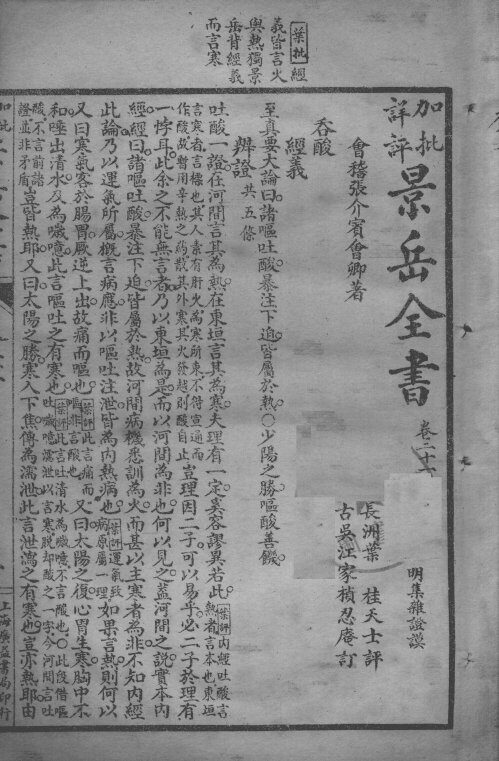 葉批經
義皆言火
與熱獨景
岳背經義
而言寒
加批
詳評
景岳全書
卷二十
明集雜證謨
會稽張介賓會卿著
長洲葉 桂天士評
古吳江家楨忍庵訂
吞酸
經義
至真要大論曰諸嘔吐酸暴注下迫皆屬於熱○少陽之勝嘔酸善饑
辨證 共五條
吐酸一證在河間言其為熱在東垣言其為寒夫理有一定奚容謬異若此葉評內經吐酸言
熱者言本也東垣
言寒者言標也其人素有肝火為寒所束不得宣通而
作酸故暫用辛熱之藥散其外寒其火發越則酸自止豈理因二子可以易乎必二子於理有
一悖耳此余之不能無言者乃以東垣為是而以河間為非也何以見之蓋河間之說實本內
經經曰諸嘔吐酸暴注下迫皆屬於熱故河間病機悉訓為火而甚以主寒者為非不知內經
此論乃以運氣所屬概言病應非以嘔吐注泄皆為內熱病也葉評運氣致
病原屬一理如果言熱則何以
又曰寒氣客於腸胃厥逆上出故痛而嘔也葉評此言痛而
嘔非言酸也又曰太陽之復心胃生寒胸中不
和唾出清水及為噦噫此言嘔吐之有寒也葉評此言吐清水為噦噫不言酸也○此段借嘔
吐噦噫濡泄以言寒脫却酸之一字今河間言吐
酸不言前諸
證並非矛盾豈皆熱耶又曰太陽之勝寒入下焦傳為濡泄此言泄瀉之有寒也豈亦熱耶由
加批
上海廣益書局印行